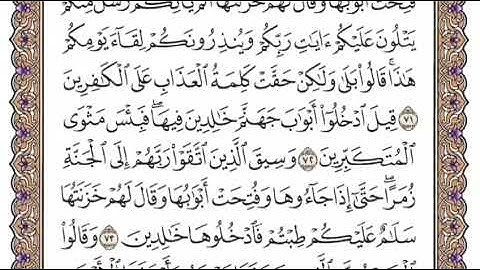 فُتِحَتْ أَبْوَابُهَا وَقَالَ لَهُمْ خَزَنَتُهَا أَلَمْ يَأْتِكُمْ رُسُلٌ مِّنكُمْ
يَتْلُونَ عَلَيْكُمْ ءَايَٰتِ رَبِّكُمْ وَيُنذِرُونَكُمْ لِقَآءَ يَوْمِكُمْ
هَٰذَا ۚ قَالُوا۟ بَلَىٰ وَلَٰكِنْ حَقَّتْ كَلِمَةُ ٱلْعَذَابِ عَلَى ٱلْكَٰفِرِينَ
٧١ قِيلَ ٱدْخُلُوٓا۟ أَبْوَٰبَ جَهَنَّمَ خَٰلِدِينَ فِيهَا ۖ فَبِئْسَ مَثْوَى
ٱلْمُتَكَبِّرِينَ ٧٢ وَسِيقَ ٱلَّذِينَ ٱتَّقَوْا۟ رَبَّهُمْ إِلَى ٱلْجَنَّةِ
زُمَرًا ۖ حَتَّىٰٓ إِذَا جَآءُوهَا وَفُتِحَتْ أَبْوَٰبُهَا وَقَالَ لَهُمْ خَزَنَتُهَا
سَلَٰمٌ عَلَيْكُمْ طِبْتُمْ فَٱدْخُلُوهَا خَٰلِدِينَ ٧٣ وَقَالُوا۟